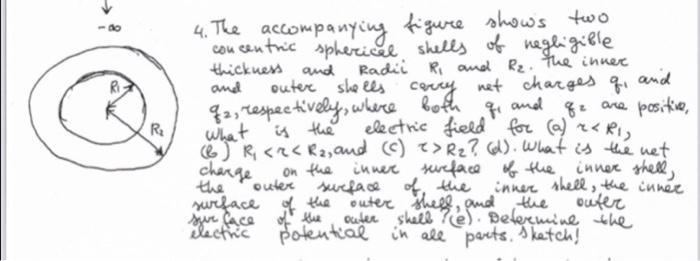 -∞
4. The accompanying figure shows two
concentric spherical shells of negligible
thickness and Radii R₁ and R₂. The inner
and outer shells carry net charges q₁ and
q₂, respectively, where both q₁ and q₂ are positive,
What is the electric field for (a) r<R₁,
(b) R₁<r<R₂, and (c) r>R₂? (d). What is the net
charge on the inner surface of the inner shell,
the outer surface of the inner shell, the inner
surface of the outer shell, and the outer
surface of the outer shell? (e). Determine the
electric potential in all parts. Sketch!
R₁
R₂